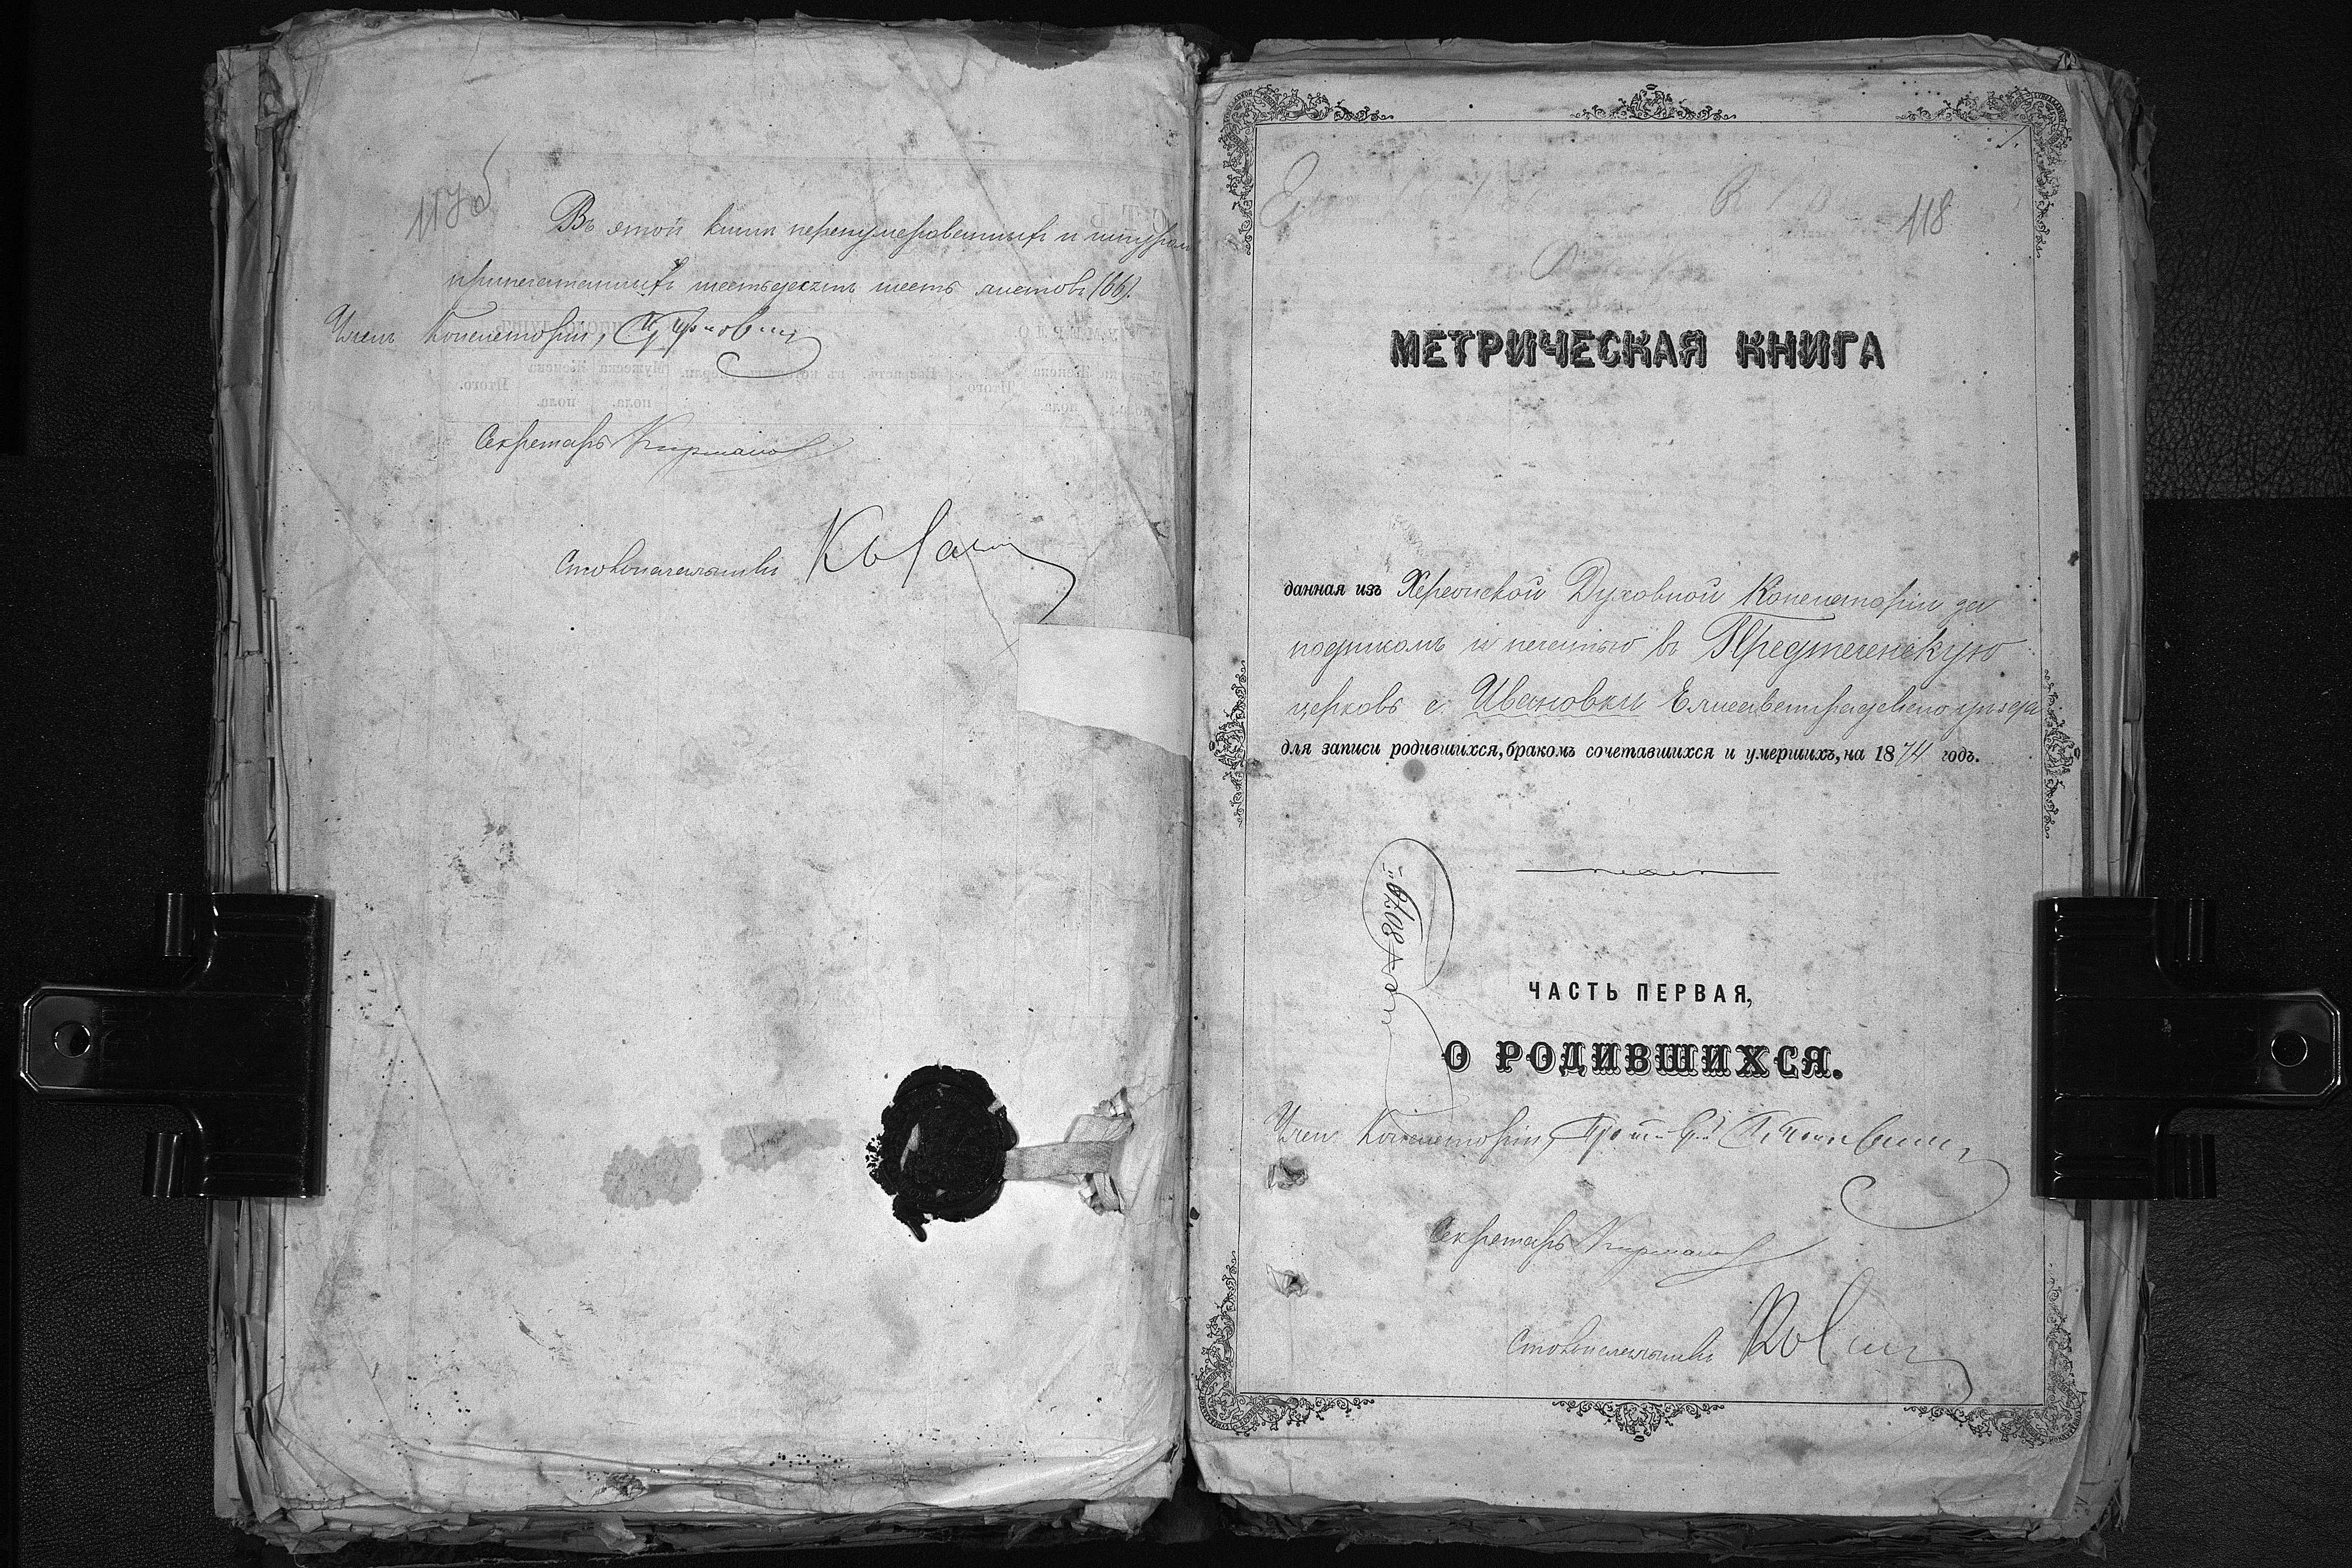 Въ этой книгѣ перенумерованныхъ и шнуромъ
припечатанныхъ шестьдесятъ шесть листовъ (66).
Членъ Консисторіи,
Секретарь
Столоначальникъ
118
МЕТРИЧЕСКАЯ КНИГА
данная изъ Херсонской Духовной Консисторіи за
подписомъ и печатью въ Предтеченскую
церковь с. Ивановки Елисаветградскаго уѣзда
для записи родившихся, бракомъ сочетавшихся и умершихъ, на 1874 годъ.
ЧАСТЬ ПЕРВАЯ,
О РОДИВШИХСЯ.
Членъ Консисторіи,
Секретарь
Столоначальникъ